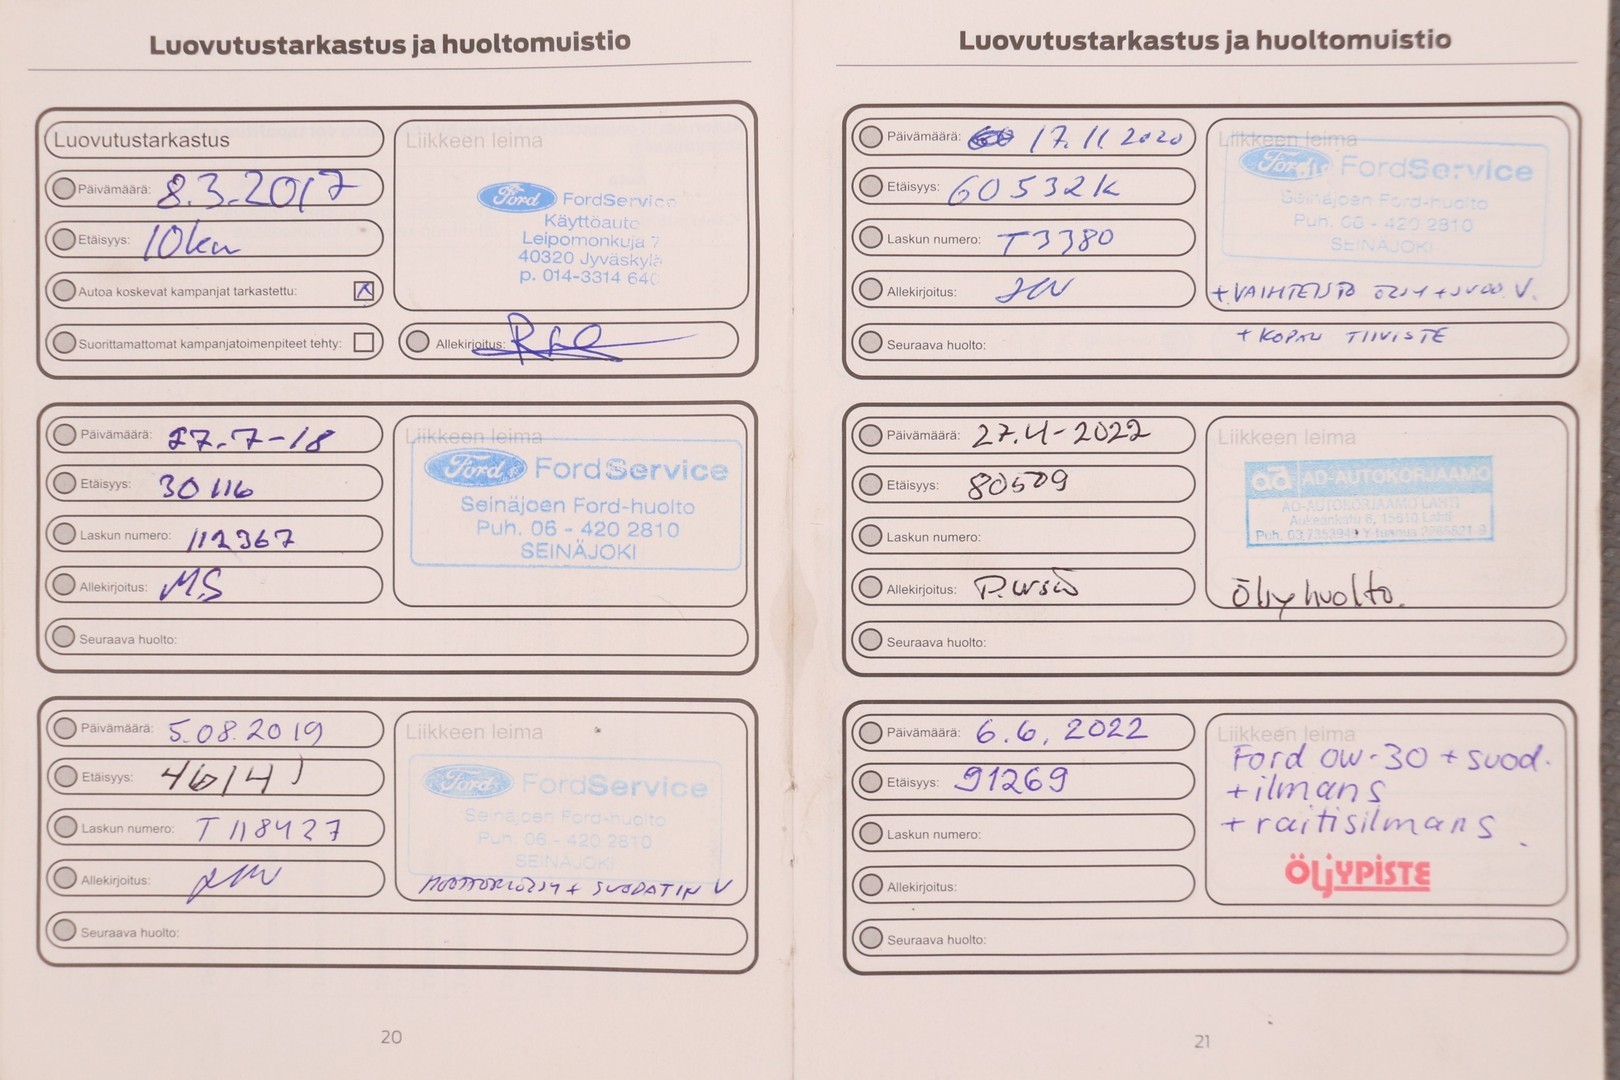 Luovutustarkastus ja huoltomuistio
Luovutustarkastus
Päivämäärä: 8.3.2017
Etäisyys: 10km
Autoa koskevat kampanjat tarkastettu:
Suorittamattomat kampanjatoimenpiteet tehty:
Liikkeen leima
Ford FordService
Käyttöauto
Leipomonkuja 7
40320 Jyväskylä
p. 014-3314 640
Allekirjoitus:
Päivämäärä: 27.7-18
Etäisyys: 30116
Laskun numero: 112367
Allekirjoitus: M.S
Seuraava huolto:
Liikkeen leima
Ford FordService
Seinäjoen Ford-huolto
Puh. 06 - 420 2810
SEINÄJOKI
Päivämäärä: 5.08.2019
Etäisyys: 46141
Laskun numero: T 118427
Allekirjoitus:
Seuraava huolto:
Liikkeen leima
Ford FordService
Seinäjoen Ford-huolto
Puh. 06 - 420 2810
SEINÄJOKI
+ SUODATIN V
20
Luovutustarkastus ja huoltomuistio
Päivämäärä: 17.11 2020
Etäisyys: 60532K
Laskun numero: T3380
Allekirjoitus:
Seuraava huolto:
Liikkeen leima
Ford FordService
Seinäjoen Ford-huolto
Puh. 06 - 420 2810
SEINÄJOKI
+ VAIHTEISTO ÖLJY + SUOD. V.
+ KOPAN TIIVISTE
Päivämäärä: 27.4-2022
Etäisyys: 80509
Laskun numero:
Allekirjoitus:
Seuraava huolto:
Liikkeen leima
ad AD-AUTOKORJAAMO
AD-AUTOKORJAAMO LAHTI
15610 Lahti
Öljyhuolto.
Päivämäärä: 6.6.2022
Etäisyys: 91269
Laskun numero:
Allekirjoitus:
Seuraava huolto:
Liikkeen leima
Ford 0W-30 + suod.
+ ilmans
+ raitisilmans.
ÖLJYPISTE
21